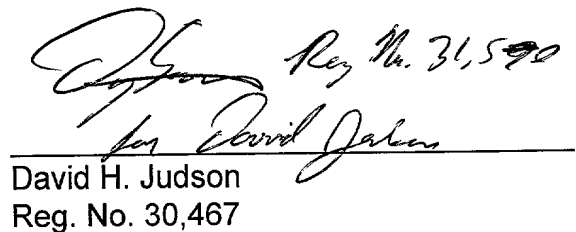 Reg No. 31,590
for David Judson
David H. Judson
Reg. No. 30,467